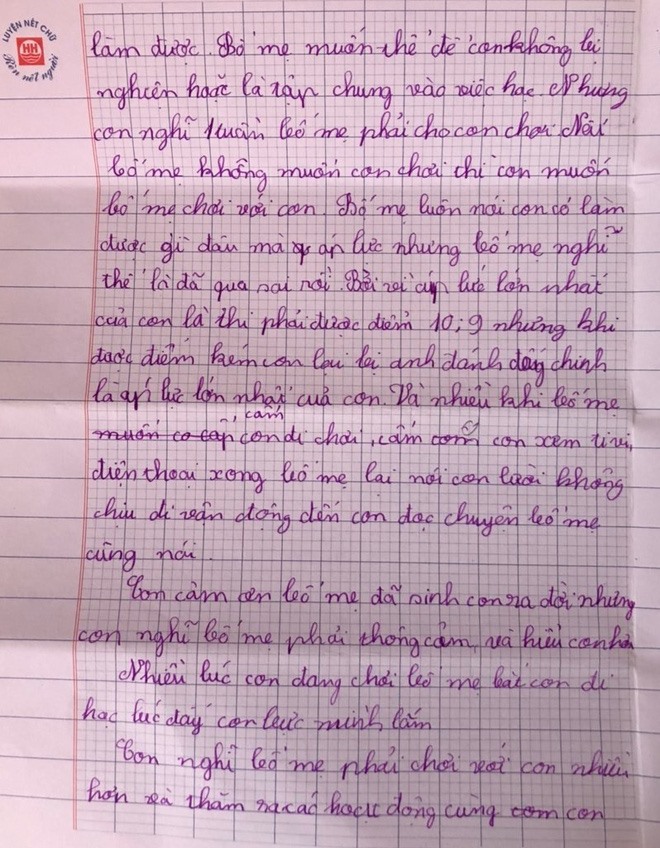 LUYỆN NÉT CHỮ
HH
Rèn nết người
làm được. Bố mẹ muốn thế để con không bị
nghiện hoặc là tập chung vào việc học. Nhưng
con nghĩ luôn bố mẹ phải cho con chơi. Nếu
bố mẹ không muốn con chơi chì con muốn
bố mẹ chơi với con. Bố mẹ luôn nói con có làm
được gì đâu mà áp lực nhưng bố mẹ nghĩ
thế là đã qua sai rồi. Bởi vì áp lực lớn nhất
của con là thi phải được điểm 10; 9 nhưng khi
được điểm kém con lại bị anh đánh đấy chính
là áp lực lớn nhất của con. Và nhiều khi bố mẹ
muốn co cấp, cấm con đi chơi, cấm con xem ti vi,
điện thoại xong bố mẹ lại nói con lười không
chịu đi vận động đến con đọc chuyện bố mẹ
cũng nói.
Con cảm ơn bố mẹ đã sinh con ra đời nhưng
con nghĩ bố mẹ phải thông cảm, và hiểu con hơn
Nhiều lúc con đang chơi bố mẹ bắt con đi
học lúc đấy con bực mình lắm
Con nghĩ bố mẹ phải chơi với con nhiều
hơn và thăm ra các hoạt động cùng com con